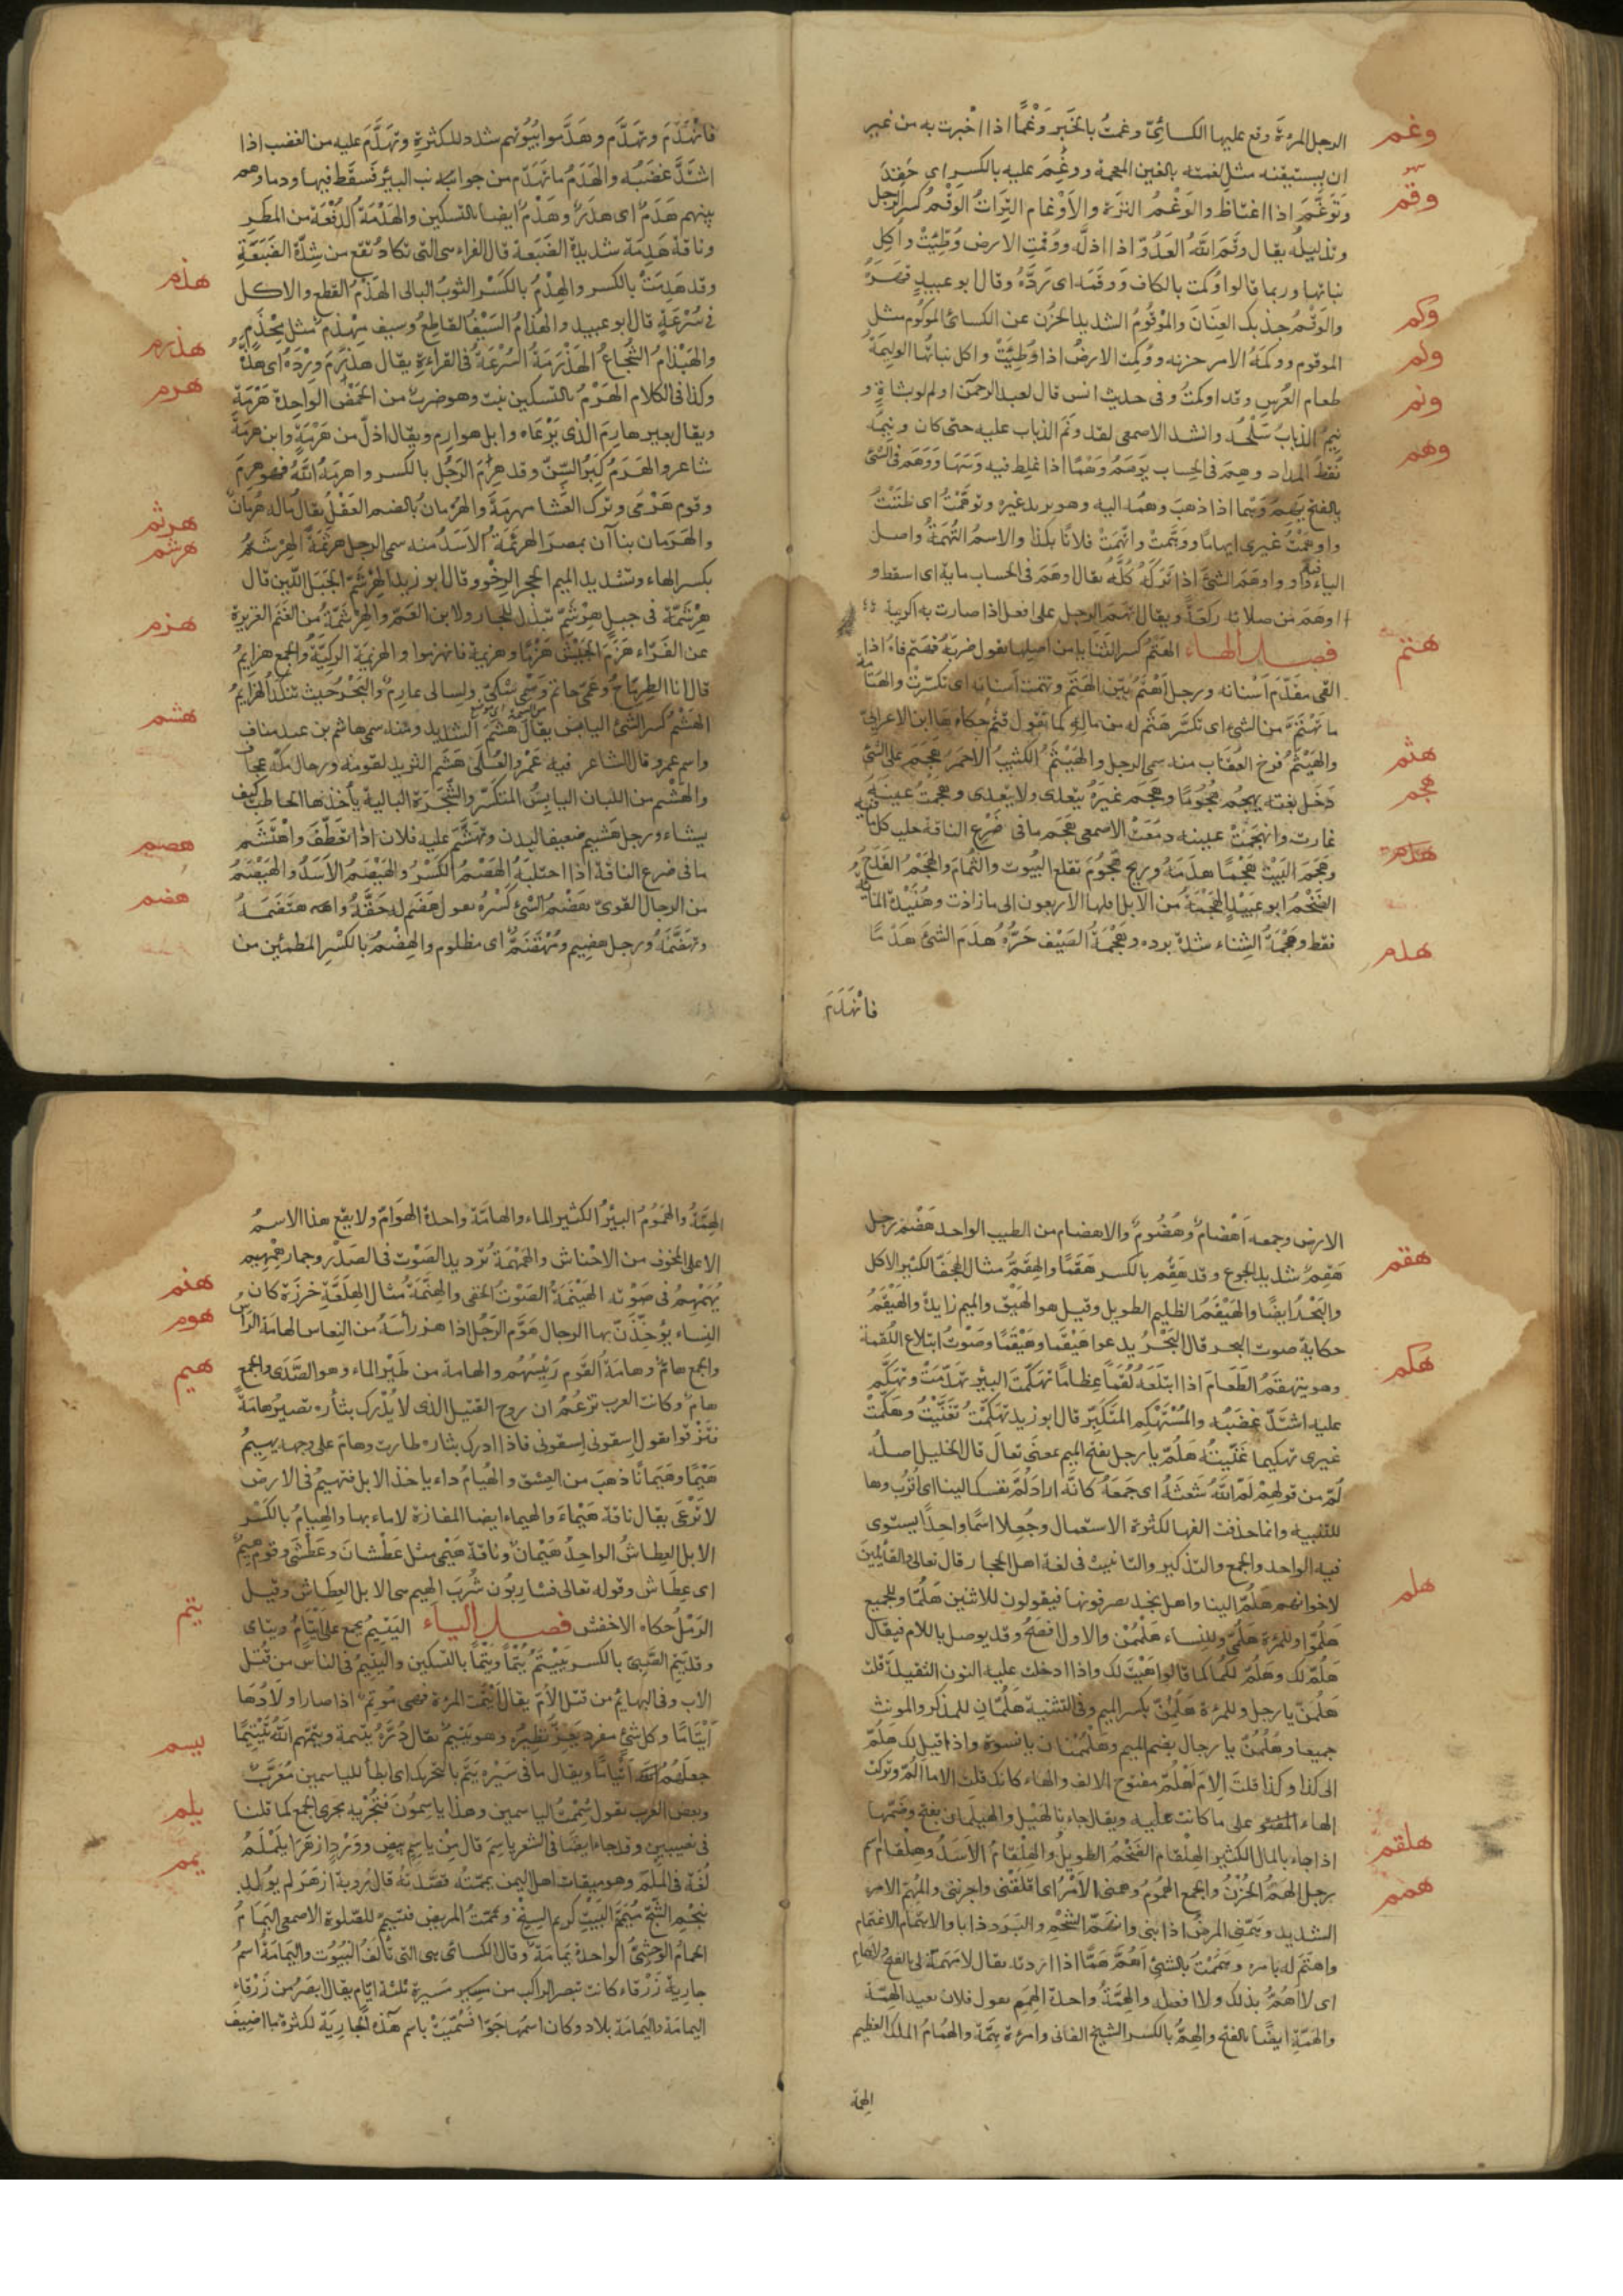 الرجل المرءة وقع عليها الكسائى وغمت بالخبر وغما اذا اخبرت به من غير
وغم
ان يستيقنه مثل لغمته بالغين المعجمة ووغم عليه بالكسر اى حقد
وتوغم اذا اغتاظ والوغم الترة والاوغام الترات الوقم كسر الرجل
وقم
وتذليله يقال وقم الله العدو اذا اذله ووقمت الارض وطئت واكل
نباتها وربما قالوا وكمت بالكاف ووقمه اى رده وقال ابو عبيد قهره
والوقم جذبك العنان والموقوم الشديد الحزن عن الكسائى الموكوم مثل
وكم
الموقوم ووكمه الامر حزنه ووكمت الارض اذا وطئت واكل نباتها الوليمة
ولم
طعام العرس وقد اولمت وفى حديث انس قال لعبد الرحمن اولم ولو بشاة و
ونم
نيم الذباب سلحه وانشد الاصمعى لقد ونم الذباب عليه حتى كان ونيمه
نقط المداد وهم فى الحساب يوهم وهما اذا غلط فيه وسها ووهم فى الشئ
وهم
بالفتح يهم وهما اذا ذهب وهمه اليه وهو يريد غيره وتوهمت اى ظننت
واوهمت غيرى ايهاما ووهمت واتهمت فلانا بكذا والاسم التهمة واصل
الياء فيه واو واوهم الشئ اذا تركه كله يقال اوهم فى الحساب ماية اى اسقط و
اوهم من صلاته ركعة ويقال اتهم الرجل على افعل اذا صارت به الريبة
فصل الهاء الهتم كسر الثنايا من اصلها يقول ضربه فهتم فاه اذا
هتم
القى مقدم اسنانه ورجل اهتم بين الهتم وتهتمت اسنانه اى تكسرت والهتامة
ما تهتم من الشئ اى تكسر هثم له من ماله كما تقول قثم حكاه ابن الاعرابى
هثم
والهيثم فرخ العقاب منه سمى الرجل والهيثم الكثيب الاحمر هجم على الشئ
دخل بغتة يهجم هجوما وهجم غيره يتعدى ولا يتعدى وهجمت عينه
هجم
غارت وانهجمت عينه دمعت الاصمعى هجم ما فى ضرع الناقة حلب كل ما فيه
وهجم البيت هجما هدمه وريح هجوم تقلع البيوت والثمام والهجم القدح
الضخم ابو عبيد الهجمة من الابل اولها الاربعون الى ما زادت وهنيدة الماية
فقط وهجمة الشتاء شدة برده وهجمة الصيف حره هدم الشئ هدما
هدم
فانهدم
فانهدم وتهدم وهدموا بيوتهم شدد للكثرة وتهدم عليه من الغضب اذا
اشتد غضبه والهدم ما تهدم من جوانب البئر فسقط فيها ودماوهم
بينهم هدم اى هدر وهدم ايضا بالتسكين والهدمة الدفعة من المطر
وناقة هدمة شديدة الضبعة قال الفراء هى التى تكاد تقع من شدة الضبعة
وقد هدمت بالكسر والهدم بالكسر الثوب البالى الهذم القطع والاكل
هذم
فى سرعة قال ابو عبيد والهذام السيف القاطع وسيف مهذم مثل مخذم
والهيذام الشجاع الهذرمة السرعة فى القراءة يقال هذرم ورده اى هذه
هذرم
وكذا فى الكلام الهرم بالتسكين نبت وهو ضرب من الحمض الواحدة هرمة
هرم
ويقال بعير هارم الذى يرعاه وابل هوارم ويقال اذل من هرمة وابن هرمة
شاعر والهرم كبر السن وقد هرم الرجل بالكسر واهرمه الله فهو هرم
وقوم هرمى وترك العشا مهرمة والهرمان بالضم العقل يقال ما له هرمان
والهرمان بناآن بمصر الهرثمة الاسد منه سمى الرجل هرثمة الهرشم
هرثم
هرشم
بكسر الهاء وتشديد الميم الحجر الرخو وقال ابو زيد الهرشم الجبل اللين قال
هرشمة فى جبل هرشم تبذل للجار ولابن العم والهرشمة من الغنم الغزيرة
عن الفراء هزم الجيش هزما وهزيمة فانهزموا والهزيمة الركية والجمع هزايم
هزم
قال انا الطرماح وعمى حاتم وسمى شكى ولسانى عارم والبحر حيث تنكد الهزايم
الهشم كسر الشئ اليابس يقال هشم الثريد ومنه سمى هاشم بن عبد مناف
هشم
واسم عمرو قال الشاعر فيه عمرو العلى هشم الثريد لقومه ورجال مكة عجاف
والهشيم من النبات اليابس المتكسر والشجرة البالية يأخذها الحاطب كيف
يشاء ورجل هشيم ضعيف البدن وتهشم عليه فلان اذا تعطف واهتشم
ما فى ضرع الناقة اذا احتلبه الهصم الكسر والهيصم الاسد والهيصم
هصم
من الرجال القوى هضم الشئ كسره يقول هضم له حقه واهتضمه
هضم
وتهضمه ورجل هضيم ومهتضم اى مظلوم والهضم بالكسر المطمئن من
الارض وجمعه اهضام وهضوم والاهضام من الطيب الواحد هضم رجل
هقم شديد الجوع وقد هقم بالكسر هقما والهقم مثال الهجف الكثير الاكل
هقم
والبحر ايضا والهيقم الظليم الطويل وقيل هو الهيق والميم زايدة والهيقم
حكاية صوت البحر قال البحر يدعو هيقما وهيقما وصوت ابتلاع اللقمة
وهو يتهقم الطعام اذا ابتلعه لقما عظاما تهكمت البير تهدمت وتهكم
هكم
عليه اشتد غضبه والمستهكم المتكبر قال ابو زيد تهكمت تغنيت وهكمت
غيرى تهكيما غنيته هلم يا رجل بفتح الميم بمعنى تعال قال الخليل اصله
لم من قولهم لم الله شعثه اى جمعه كانه اراد لم نفسك الينا اى اقرب وها
للتنبيه وانما حذفت الفها لكثرة الاستعمال وجعلا اسما واحدا يستوى
فيه الواحد والجمع والتذكير والتانيث فى لغة اهل الحجاز قال تعالى والقائلين
لاخوانهم هلم الينا واهل نجد يصرفونها فيقولون للاثنين هلما وللجميع
هلم
هلموا وللمرءة هلمى وللنساء هلممن والاول افصح وقد يوصل باللام فيقال
هلم لك وهلم لكما كما قالوا هيت لك واذا ادخلت عليه النون الثقيلة قلت
هلمن يا رجل وللمرءة هلمن بكسر الميم وفى التثنية هلمان للمذكر والمونث
جميعا وهلمن يا رجال بضم الميم وهلممنان يا نسوة واذا قيل لك هلم
الى كذا وكذا قلت الام اهلم مفتوح الالف والهاء كانك قلت الاما الم وتركت
الهاء على ما كانت عليه ويقال جاءنا بالهيل والهيلمان بفتح وضمها
اذا جاء بالمال الكثير الهلقام الضخم الطويل والهلقام الاسد وهلقام اسم
هلقم
رجل الهم الحزن والجمع الهموم وهمنى الامر اى اقلقنى واحزننى والمهم الامر
همم
الشديد وهمنى المرض اذابنى وانهم الشحم والبرد ذابا والاهتمام الاغتمام
واهتم له بامره وهممت بالشئ اهم هما اذا اردته يقال لا مهمة لى بالفتح ولا همام
اى لا اهم بذلك ولا افعله والهمة واحدة الهمم يقول فلان بعيد الهمة
والهمة ايضا بالفتح والهم بالكسر الشيخ الفانى وامرءة همة والهمام الملك العظيم
الهمة
الهمة والهموم البير الكثير الماء والهامة واحدة الهوام ولا يقع هذا الاسم
الا على المخوف من الاحناش والهمهمة ترديد الصوت فى الصدر وحمار همهيم
يهمهم فى صوته الهينمة الصوت الخفى والهنمة مثال الهلعة خرزة كان
هنم
النساء يؤخذن بها الرجال هوم الرجل اذا هز رأسه من النعاس الهامة الراس
هوم
والجمع هام وهامة القوم رئيسهم والهامة من طير الماء وهو الصدى والجمع
هيم
هام وكانت العرب تزعم ان روح القتيل الذى لا يدرك بثأره تصير هامة
فتزقوا تقول اسقونى اسقونى فاذا ادرك بثاره طارت وهام على وجهه يهيم
هيما وهيمانا ذهب من العشق والهيام داء ياخذ الابل فتهيم فى الارض
لا ترعى يقال ناقة هيماء والهيماء ايضا المفازة لا ماء بها والهيام بالكسر
الابل العطاش الواحد هيمان وناقة هيمى مثل عطشان وعطشى وقوم هيم
اى عطاش وقوله تعالى فشاربون شرب الهيم هى الابل العطاش وقيل
الرمل حكاه الاخفش فصل الياء اليتيم يجمع على ايتام ويتامى
يتم
وقد يتم الصبى بالكسر ييتم يتما ويتما بالتسكين واليتيم فى الناس من قبل
الاب وفى البهايم من قبل الام يقال ايتمت المرءة فهى موتم اذا صار اولادها
ايتاما وكل شئ مفرد يعز نظيره وهو يتيم يقال درة يتيمة ويتمهم الله تيتيما
جعلهم ايتاما ويقال ما فى سيره يتم بالتحريك اى ابطأ للياسمين معرب
يسم
وبعض العرب يقول شممت الياسمين وهذا ياسمون فتجريه مجرى الجمع كما قلنا
فى نصيبين وقد جاء ايضا فى الشعر ياسم قال من ياسم بيض وورد ازهرا يلملم
يلم
لغة فى الملم وهو ميقات اهل اليمن يممته قصدته قال رؤبة ازهر لم يولد
يمم
بنجم الشح ميمم البيت كريم السنخ ويممت المريض فتيمم للصلوة الاصمعى اليمام
الحمام الوحشى الواحدة يمامة وقال الكسائى هى التى تألف البيوت واليمامة اسم
جارية زرقاء كانت تبصر الراكب من مسيرة ثلثة ايام يقال ابصر من زرقاء
اليمامة واليمامة بلاد وكان اسمها جوا فسميت باسم هذه الجارية لكثرة ما اضيف